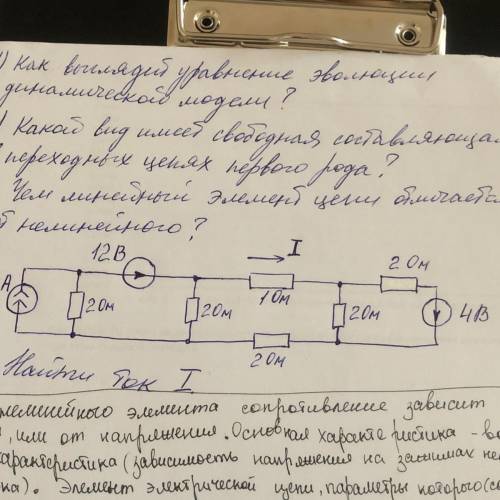 ) Как выглядит уравнение эволюции
динамической модели?
) Какой вид имеет свободная составляющая
в переходных цепях первого рода?
Чем линейный элемент цепи отличается
от нелинейного?
I
12В
2Ом
А
2Ом
2Ом
1Ом
2Ом
4В
2Ом
Найти ток I
нелинейного элемента сопротивление зависит
, или от напряжения. Основная характеристика - во
характеристика (зависимость напряжения на зажимах не
ка). Элемент электрической цепи, параметры которого (со